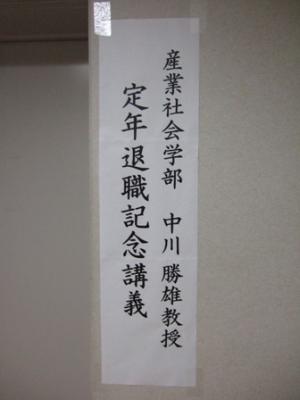 産業社会学部 中川 勝雄教授
定年退職記念講義